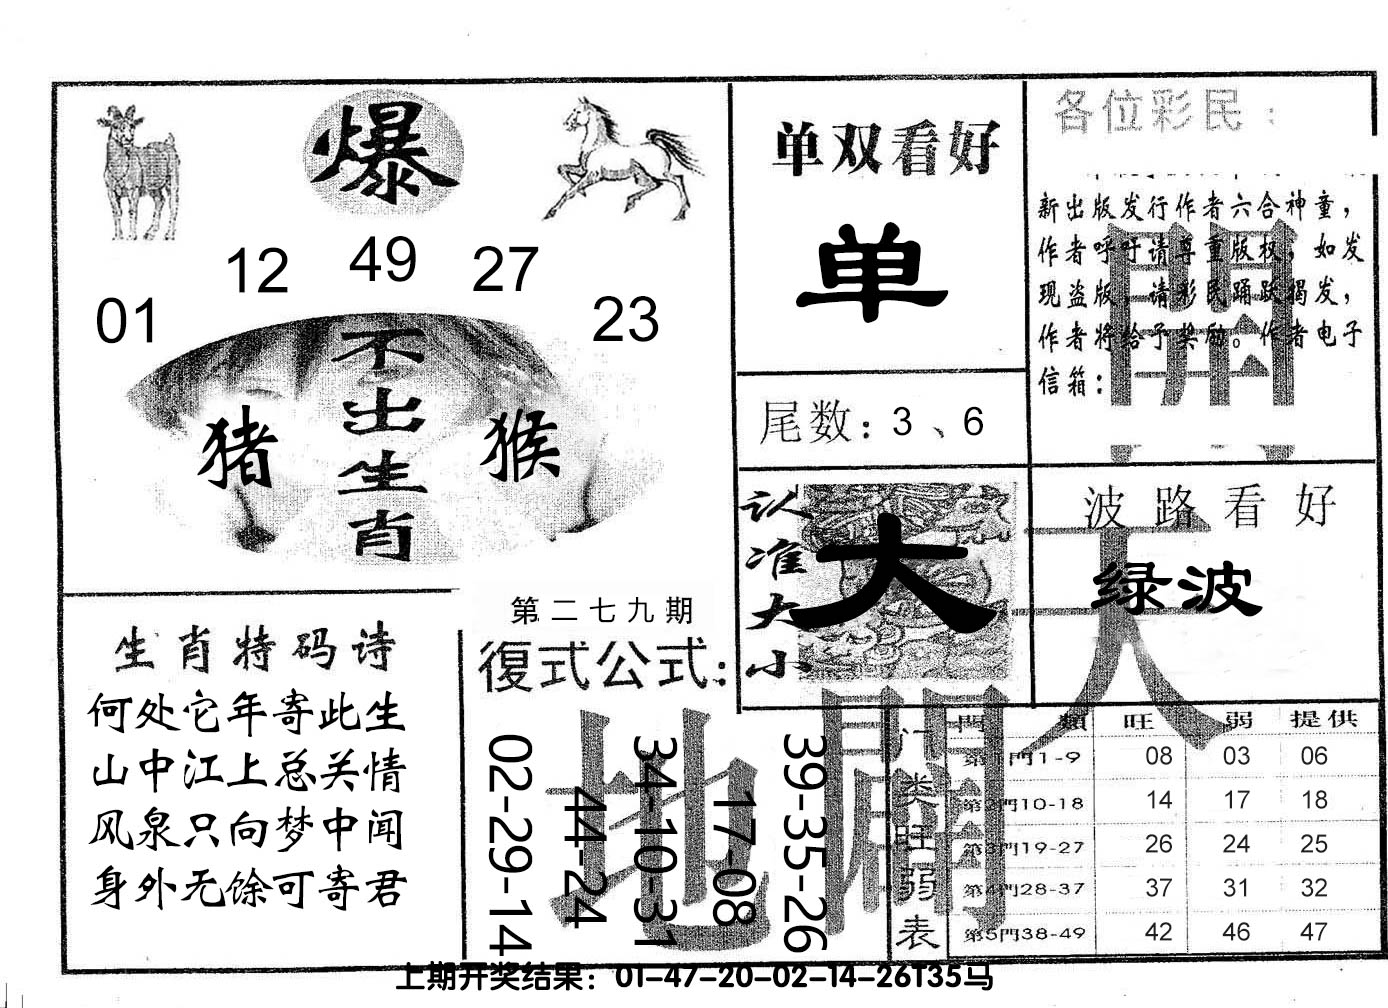 爆
01 12 49 27 23
不出生肖
猪
猴
生肖特码诗
何处它年寄此生
山中江上总关情
风泉只向梦中闻
身外无馀可寄君
第二七九期
復式公式:
02-29-14
44-24
34-10-31
17-08
39-35-26
单双看好
单
尾数: 3、6
认准大小
大
各位彩民:
新出版发行作者六合神童,
作者呼吁请尊重版权,如发
现盗版,请彩民踊跃揭发,
作者将给予奖励。作者电子
信箱:
波路看好
绿波
天
地
門類 旺 弱 提供
门类旺弱表
第1門1-9 08 03 06
第2門10-18 14 17 18
第3門19-27 26 24 25
第4門28-37 37 31 32
第5門38-49 42 46 47
上期开奖结果：01-47-20-02-14-26T35马